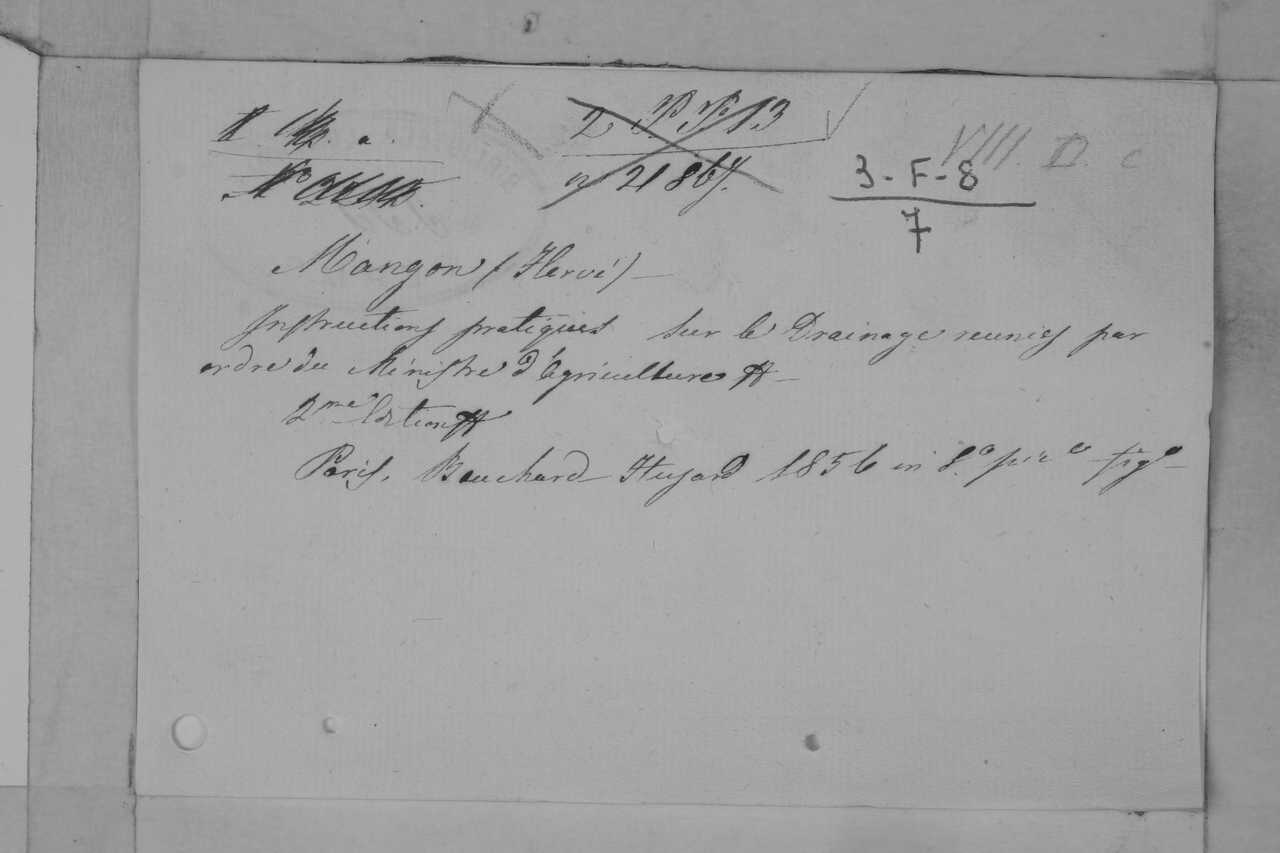 2
2186
VIII. D. c
3-F-8
7
Mangon (Hervé)—
Instructions pratiques sur le Drainage reunies par
ordre du Ministre d'Agriculture —
2me Edition
Paris, Bouchard-Husard 1856 in 8º figs